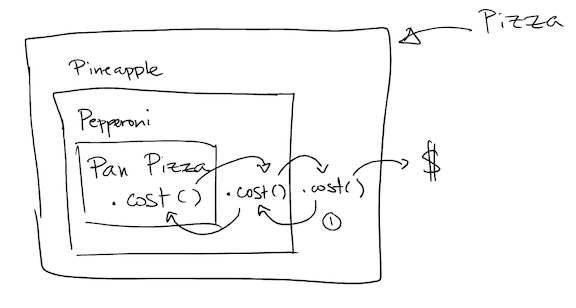 Pizza
Pineapple
Pepperoni
Pan Pizza
.cost() .cost() .cost()
$
1